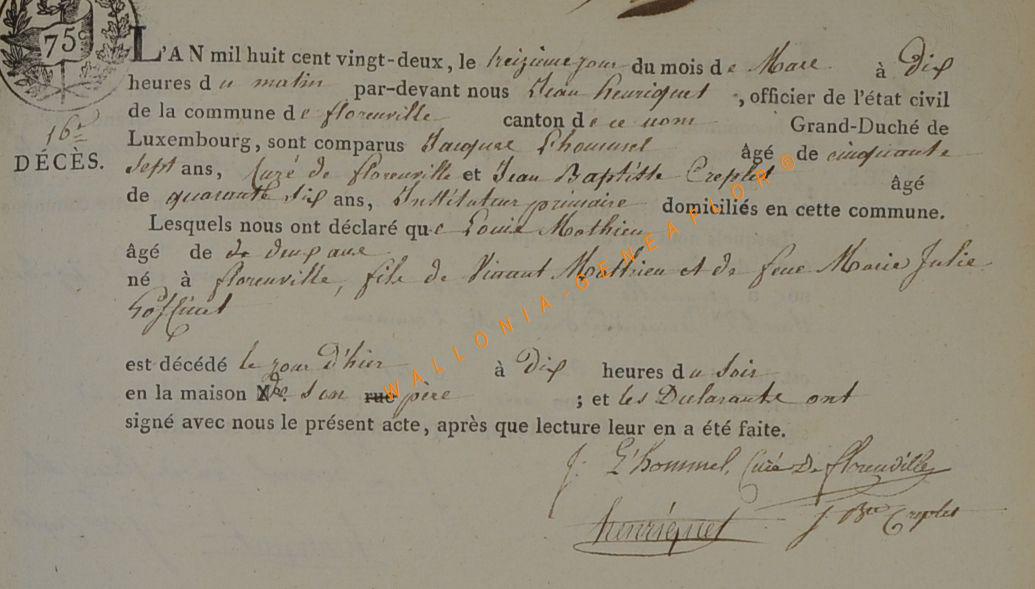 75c
L'AN mil huit cent vingt-deux, le treizieme jour du mois de Mars à Dix
heures du matin par-devant nous Jean henriquet, officier de l'état civil
de la commune de florenville canton de ce nom Grand-Duché de
16e
DÉCÈS.
Luxembourg, sont comparus Jacques Lhommel âgé de cinquante
sept ans, Curé de florenville et Jean Baptiste Creplet âgé
de quarante six ans, Instituteur primaire domiciliés en cette commune.
Lesquels nous ont déclaré que Louis Mathieu
âgé de deux ans
né à florenville, fils de Mathieu et de feue Marie Julie
Goffinet
est décédé le jour d'hier à Dix heures du Soir
en la maison N.° de son rue père ; et les Declarants ont
signé avec nous le présent acte, après que lecture leur en a été faite.
J. L'hommel, Curé de florenville
henriquet J Bte Creplet
WALLONIA-GENEAFLOR®